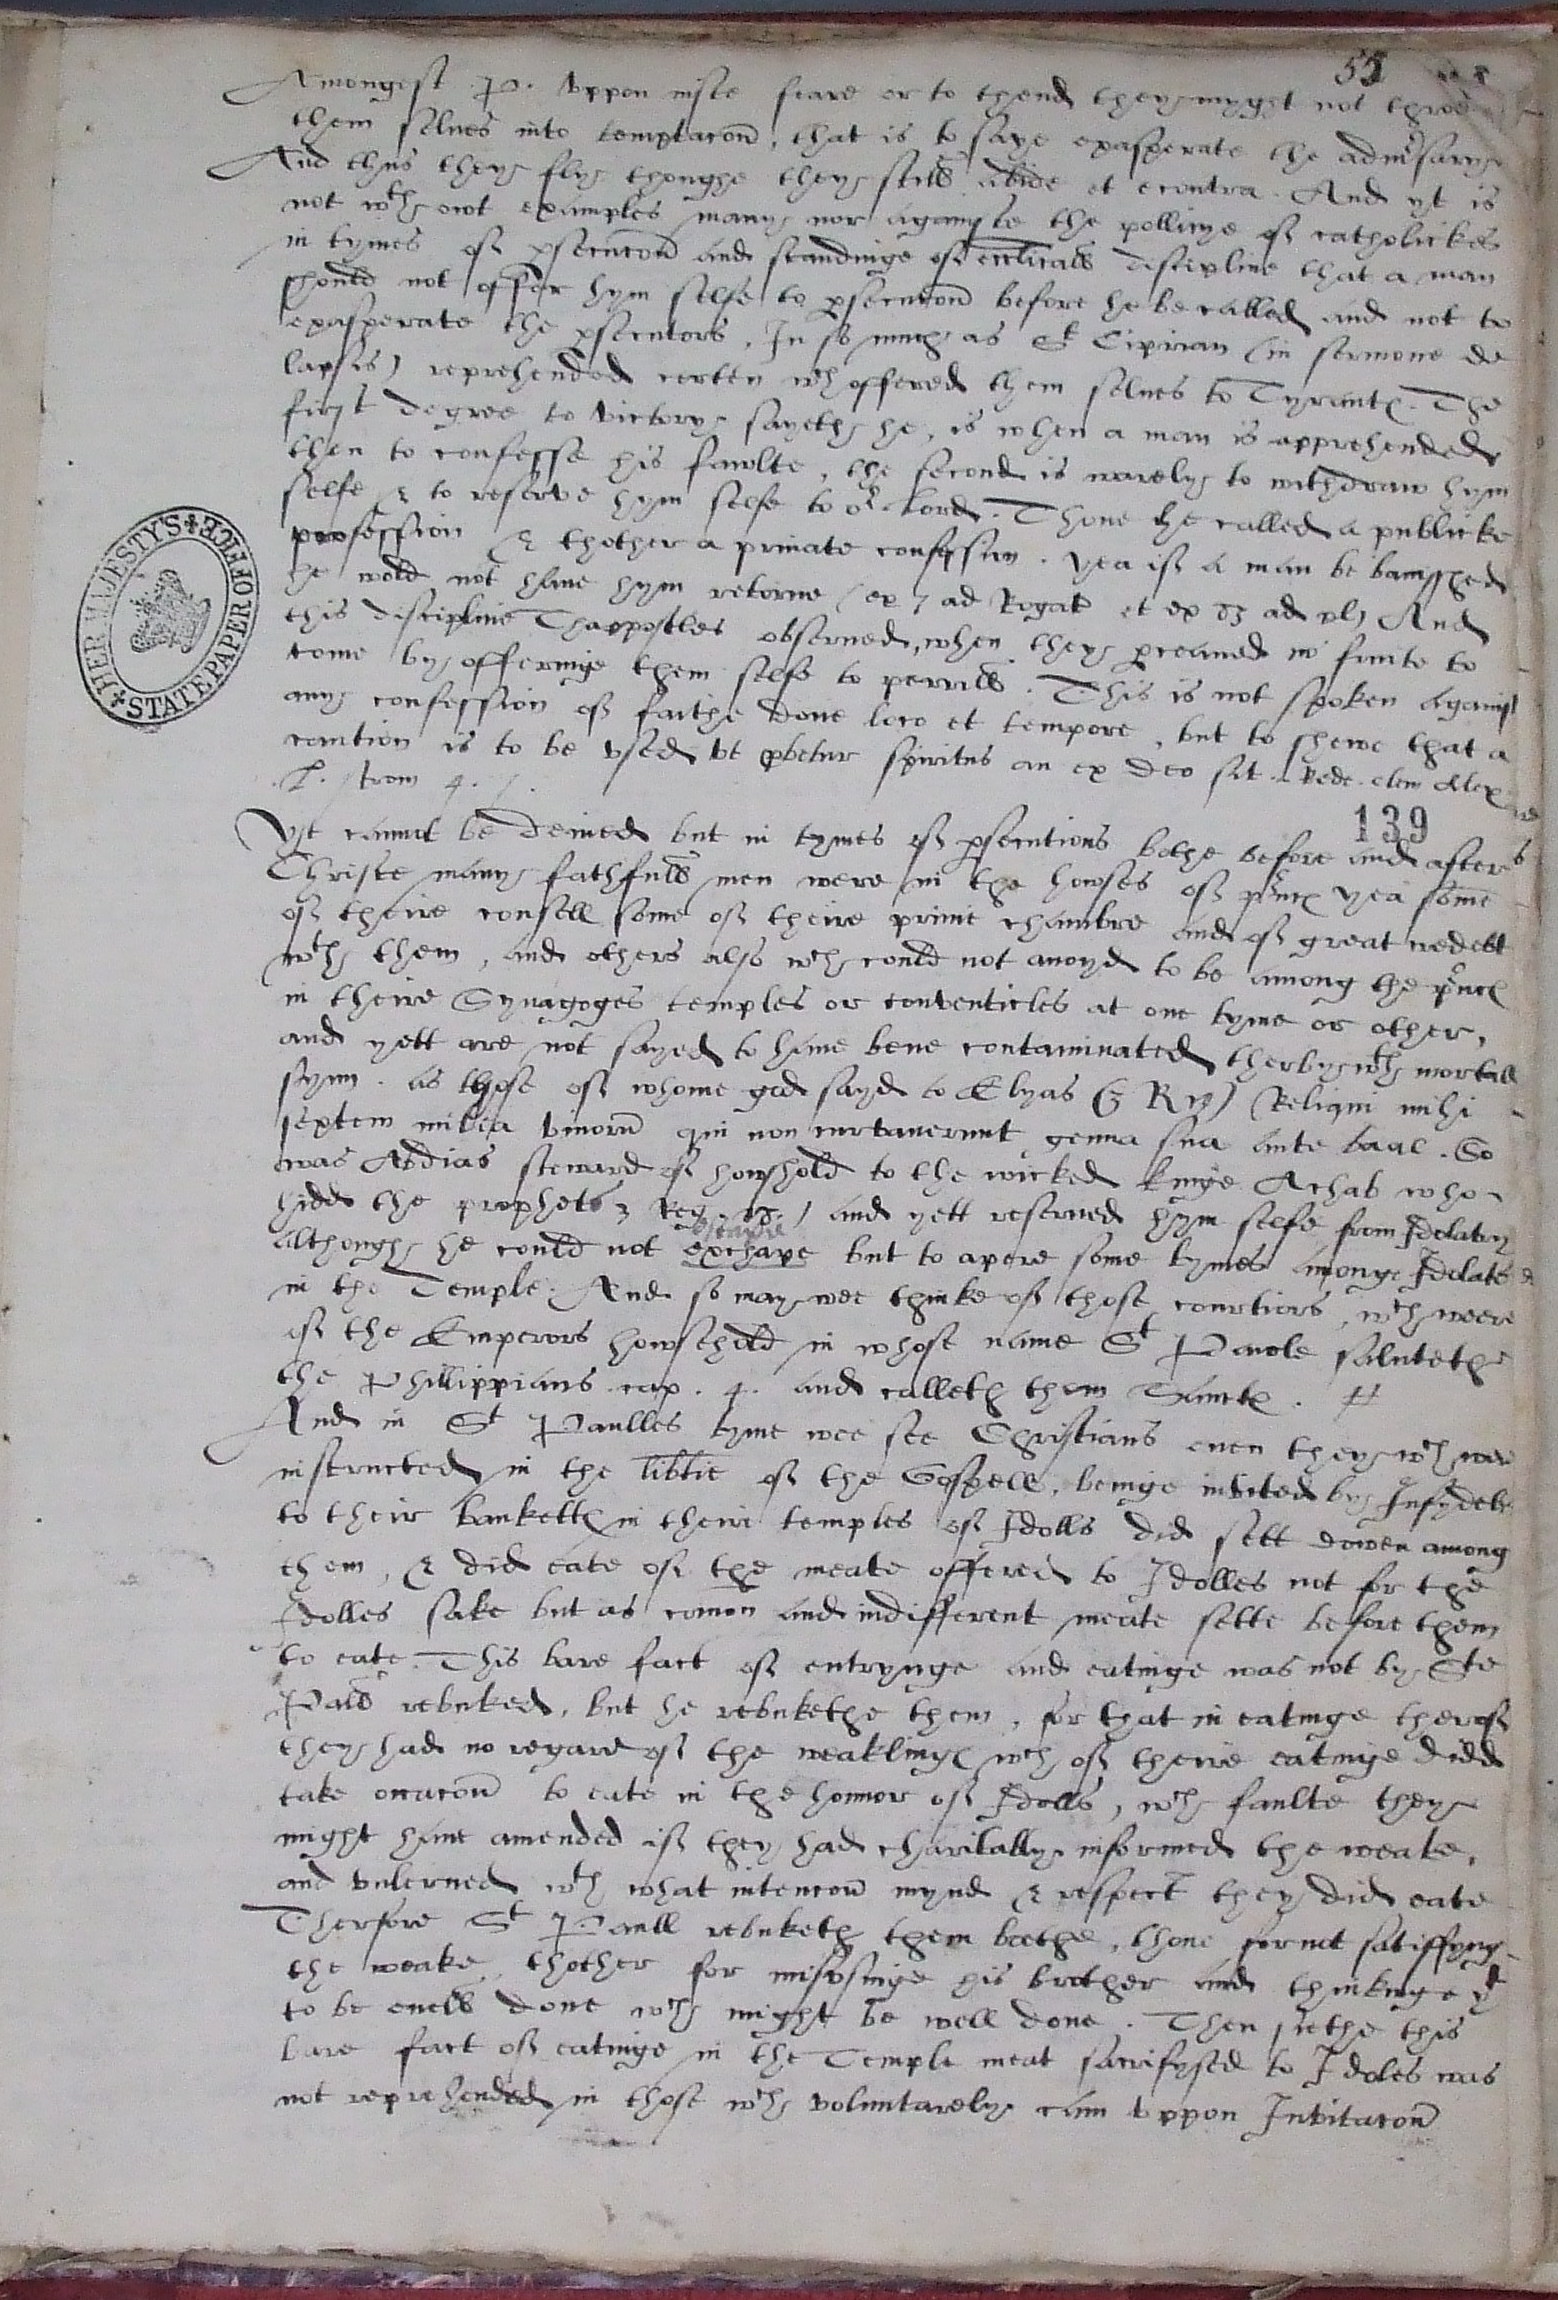 55
Amongest P. uppon iuste feare or to thend they myght not throw
them selves into temptacon, that is to saye exasperate the adversarye
And thus they flye thoughe they still abide et econtra. And yt is
not wth owt examples many nor againste the pollicye of catholickes
in tymes of psecucon and standinge of eccliall discipline that a man
should not offer hym selfe to psecucon before he be called and not to
exasperate the psecutors. In so much as St Ciprian (in sermone de
lapsis) reprehended certen wch offered them selves to Tyrants. The
first degree to victory sayeth he, is when a man is apprehended
then to confesse his fawlte, the second is warely to withdraw hym
selfe & to reserve hym selfe to or Lord. Thone he called a publicke
profession & thother a private confession. yea if a man be banisshed
he wold not have hym retorne (ep 7 ad Rogat et ep 83 ad pl) And
this discipline Thappostles observed, when they pceaved no fruite to
come by offeringe them selfe to perrill. This is not spoken against
any confession of faithe done loco et tempore, but to shewe that a
caution is to be used ut pbetur spiritus an ex deo sit. Vede clem Alex
L. strom 4. 7.
139
Yt cannot be denied but in tymes of psecutions bothe before and after
Christe many faithfull men were in the howses of princs yea some
of theire consell some of theire privie chambre and of great credett
wth them, and others also wch could not avoyd to be among the princs
in theire Synagoges temples or conventicles at one tyme or other,
and yett are not sayed to have bene contaminated therby wth mortall
synn. as those of whome god sayd to Elyas (3 R 19) Reliqui mihi
septem milia virorum qui non curvaverunt genua sua ante baal. So
was Abdias steward of howshold to the wicked kinge Achab who
hidd the prophets 3 Reg. 18.) and yett reserved hym selfe from Idolatry
escape
althoughe he could not exchape but to apere some tymes amonge Idolaters
in the Temple. And so may wee thinke of those courtiers, wch weere
of the Emperors howsehold in whose name St Pawle salutethe
the Phillippians cap. 4. and calleth them Saincts. #
And in St Paulles tyme wee see Christians even they wch were
instructed in the libtie of the Gospell, beinge invited by Infydels
to their banketts in theire temples of Idolls did sett downe among
them, & did eate of the meate offered to Idolles not for the
Idolles sake but as comon and indifferent meate sette before them
to eate. This bare fact of entrynge and eatinge was not by Ste
Pall rebuked, but he rebukethe them, for that in eatinge therof
they had no regard of the weaklings wch of theire eatinge didd
take occacon to eate in the honnor of Idolls, wch faulte they
might have amended if they had charitably informed the weake,
and unlerned wth what intencon mynd & respect they did eate
Therfore St Paull rebuketh them bothe, thone for not satisffyng
the weake, thother for misusinge his brother and thinkinge yt
to be evell done wch might be well done. Then sithe this
bare fact of eatinge in the Temple meat sacrifysed to Idoles was
not reprehended in those wch voluntarely cam uppon Invitacon
HER MAJESTY'S STATE PAPER OFFICE